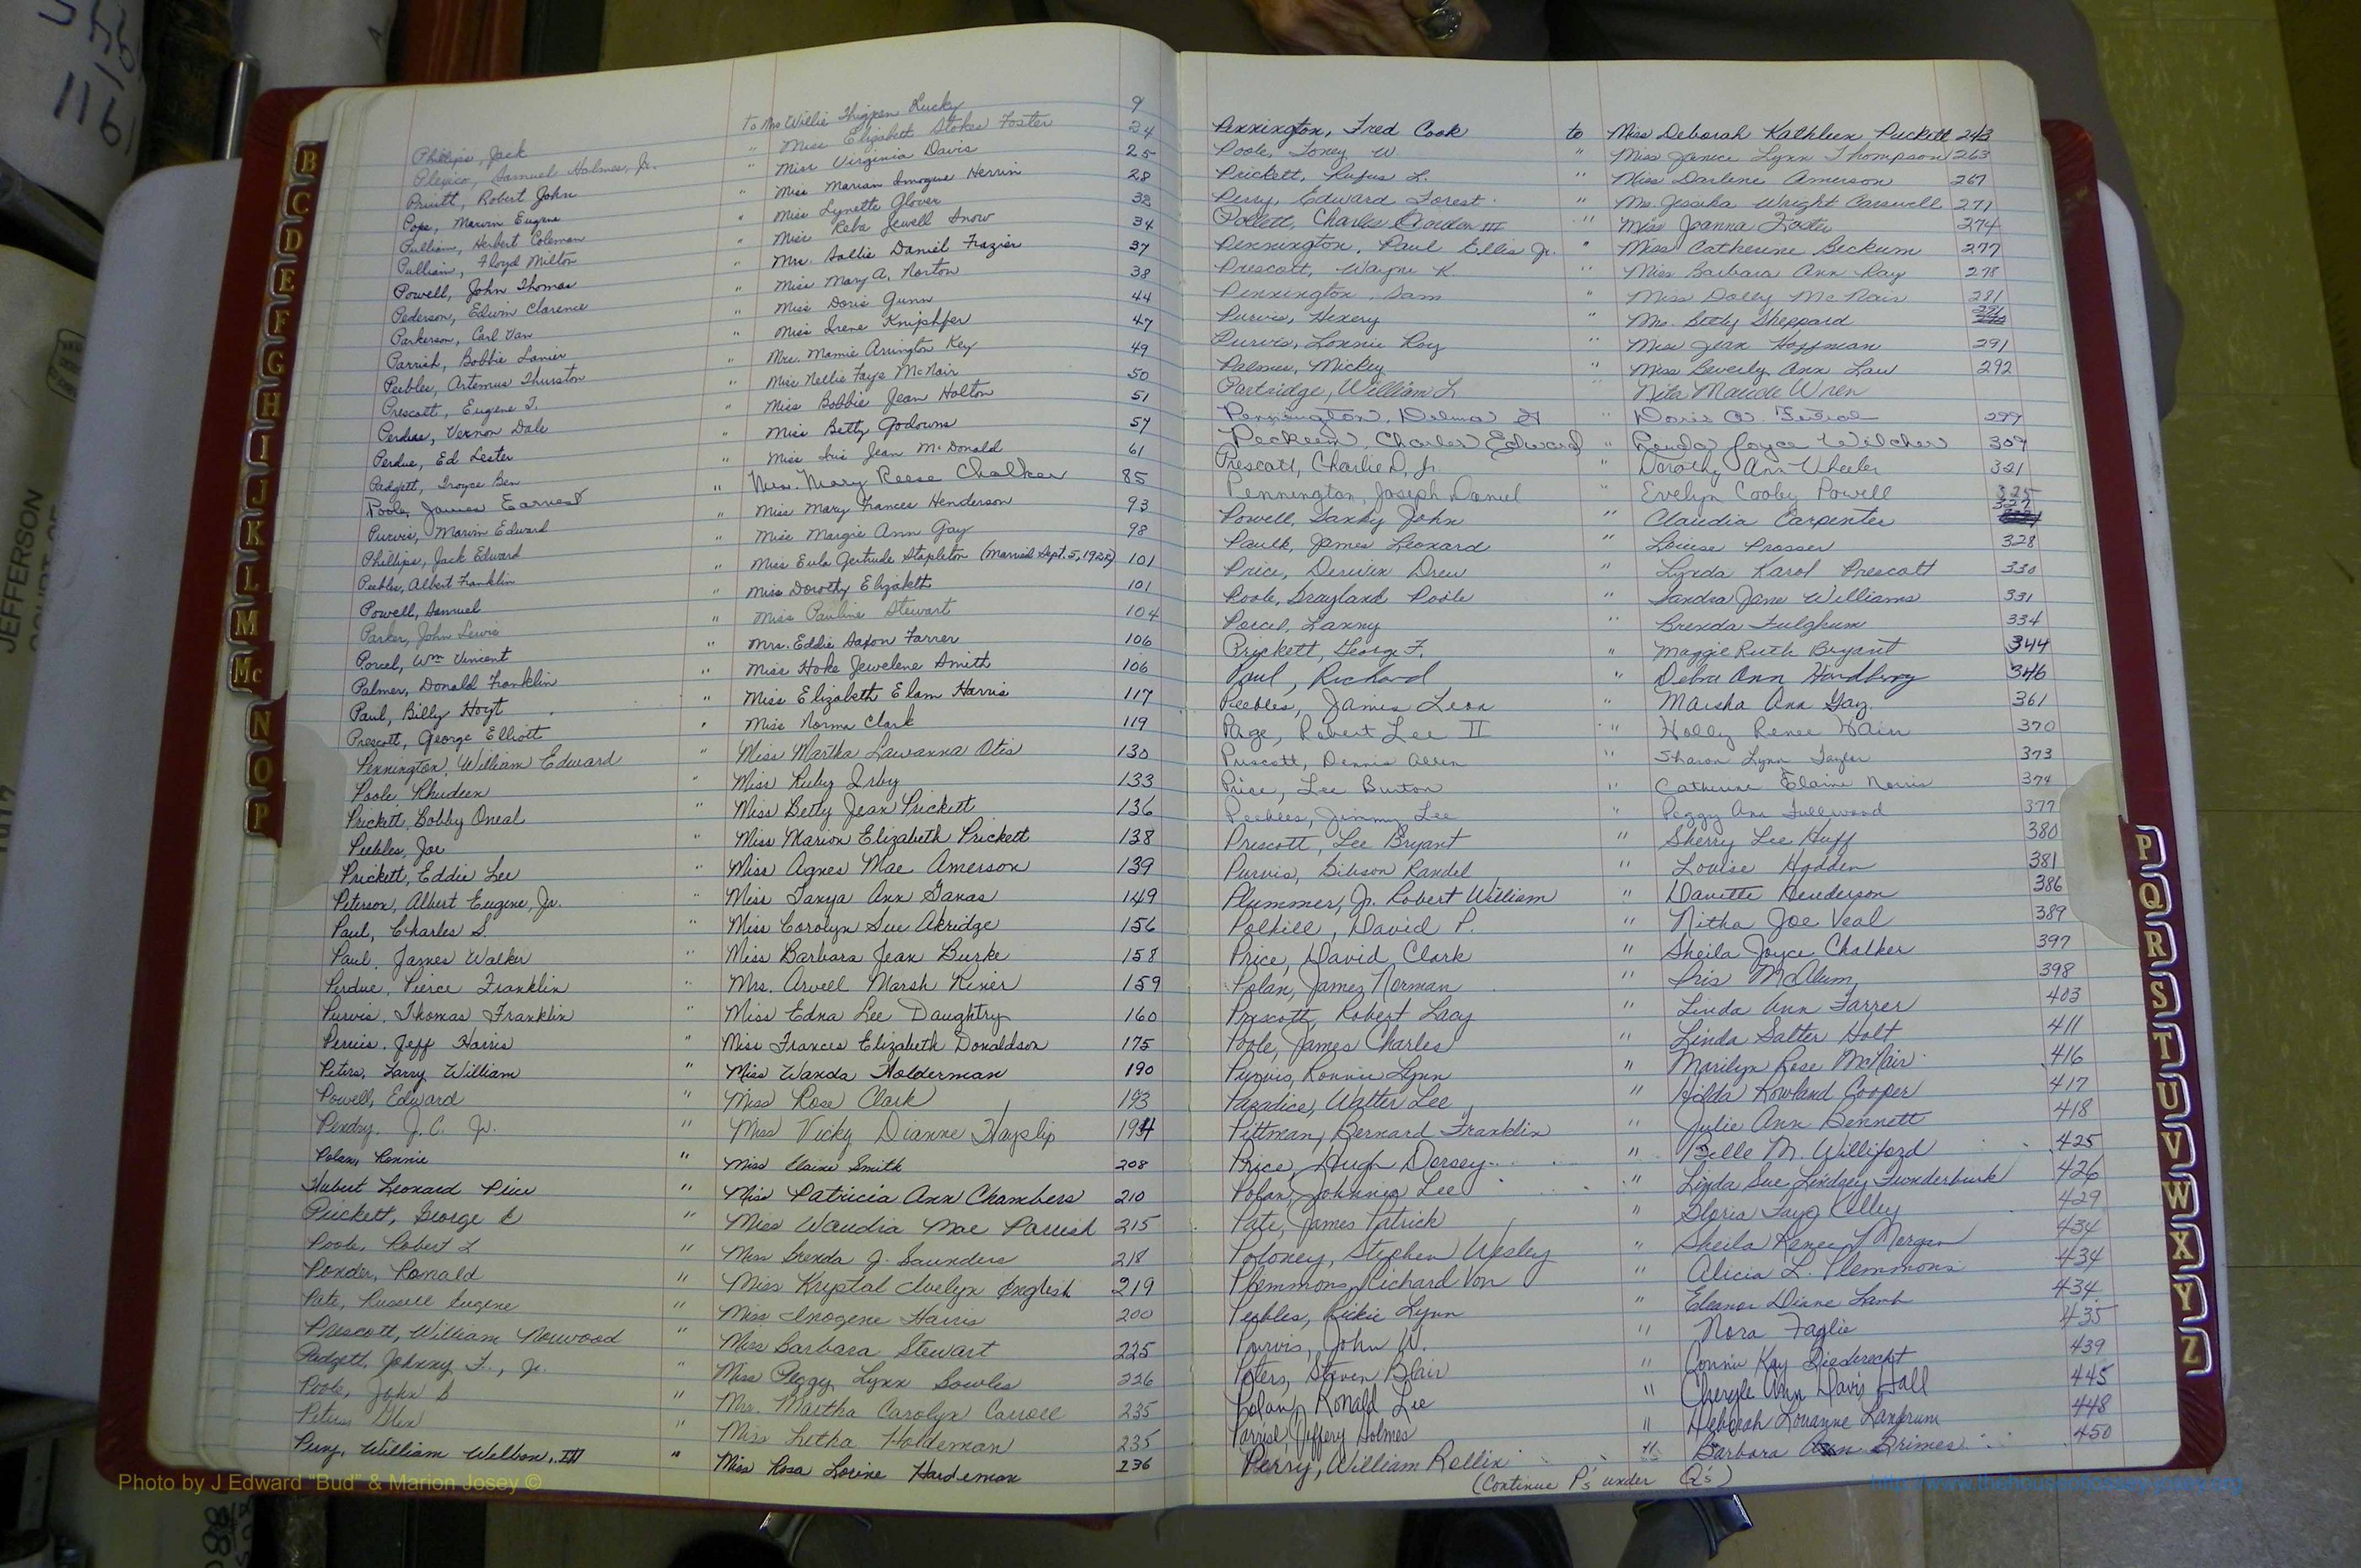 Phillips, Jack to Ms Willie Thigpen Lucky 9
Plexico, Samuel Holmes, Jr. " Miss Elizabeth Stokes Foster 24
Pruitt, Robert John " Miss Virginia Davis 25
Pope, Marvin Eugene " Miss Marian Imogene Herrin 28
Pulliam, Herbert Coleman " Miss Lynette Glover 32
Pulliam, Floyd Milton " Miss Reba Jewell Snow 34
Powell, John Thomas " Mrs. Sallie Daniel Frazier 37
Pederson, Edwin Clarence " Miss Mary A. Norton 38
Parkerson, Carl Van " Miss Doris Gunn 44
Parrish, Bobbie Lanier " Miss Irene 47
Peebles, Artemus Thurston " Mrs. Mamie Arrington Key 49
Prescott, Eugene T. " Miss Nellie Faye McNair 50
Perdue, Vernon Dale " Miss Bobbie Jean Holton 51
Perdue, Ed Lester " Miss Betty Godowns 57
Padgett, Troyce Ben " Miss Iris Jean McDonald 61
Poole, James Earnest " Mrs. Mary Reese Chalker 85
Purvis, Marvin Edward " Miss Mary Frances Henderson 93
Phillips, Jack Edward " Miss Margie Ann Gay 98
Peebles, Albert Franklin " Miss Eula Gertrude Stapleton (Married Sept. 5, 1928) 101
Powell, Samuel " Miss Dorothy Elizabeth 101
Parker, John Lewis " Miss Pauline Stewart 104
Porcel, Wm Vincent " Mrs. Eddie Saxon Farrer 106
Palmer, Donald Franklin " Miss Hoke Jewelene Smith 106
Paul, Billy Hoyt " Miss Elizabeth Elam Harris 117
Prescott, George Elliott " Miss Norma Clark 119
Pennington, William Edward " Miss Martha Lawanna Otis 130
Poole, Rhudeen " Miss Ruby Irby 133
Prickett, Bobby Oneal " Miss Betty Jean Prickett 136
Peebles, Joe " Miss Marion Elizabeth Prickett 138
Prickett, Eddie Lee " Miss Agnes Mae Amerson 139
Peterson, Albert Eugene, Jr. " Miss Tanya Ann Ganas 149
Paul, Charles S. " Miss Carolyn Sue Akridge 156
Paul, James Walker " Miss Barbara Jean Burke 158
Perdue, Pierce Franklin " Mrs. Arvell Marsh Kiner 159
Purvis, Thomas Franklin " Miss Edna Lee Daughtry 160
Purvis, Jeff Harris " Miss Frances Elizabeth Donaldson 175
Peters, Larry William " Miss Wanda Holderman 190
Powell, Edward " Miss Rose Clark 193
Pendry, J. C. Jr. " Miss Vicky Dianne Hayslip 194
Polan, Ronnie " Miss Elaine Smith 208
Hubert Leonard Price " Miss Patricia Ann Chambers 210
Prickett, George E " Miss Waudia Mae Parrish 215
Poole, Robert L " Miss Brenda J. Saunders 218
Ponder, Ronald " Miss Krystal Evelyn English 219
Pate, Russell Eugene " Miss Imogene Harris 200
Prescott, William Norwood " Miss Barbara Stewart 225
Padgett, Johnny F., Jr. " Miss Peggy Lynn Sowles 226
Poole, John B " Mrs. Martha Carolyn Carroll 235
Peters Glen " Miss Letha Holdeman 235
Perry, William Welborn, III " Miss Rosa Lorine Hardeman 236
Pennington, Fred Cook to Miss Deborah Kathleen Puckett 243
Poole, Toney W. " Miss Janice Lynn Thompson 263
Prickett, Rufus L. " Miss Darlene Amerson 267
Perry, Edward Forest " Ms. Jessica Wright Carswell 271
Pollett, Charles Gordon III " Miss Joanna Foster 274
Pennington, Paul Ellis Jr. " Miss Catherine Beckum 277
Prescott, Wayne K. " Miss Barbara Ann Ray 278
Pennington, Sam " Miss Dolly McNair 281
Purvis, Hexery " Mrs. Betty Sheppard
Purvis, Lonnie Roy " Miss Jean Hoffman 291
Palmer, Mickey " Miss Beverly Ann Law 292
Partridge, William L " Nita Maude Wren
Pennington, Delma " Doris 299
Peckeem, Charles Edward " Londa Joyce Wilcher 309
Prescott, Charlie D, Jr. " Dorothy Ann Wheeler 321
Pennington, Joseph Daniel " Evelyn Cooby Powell 325
Powell, Sanky John " Claudia Carpenter 327
Paulk, James Leonard " Louise Prosser 328
Price, Derwin Drew " Lynda Karol Prescott 330
Poole, Grayland Poole " Sandra Jane Williams 331
Porcel, Lanny " Brenda Fulghum 334
Prickett, George F. " Maggie Ruth Bryant 344
Paul, Richard " Debra Ann Handberry 346
Peebles, James Leon " Marsha Ann Gay 361
Page, Robert Lee II " Holly Renee Hain 370
Prescott, Dennis Allen " Sharon Lynn Taylor 373
Price, Lee Burton " Catherine Elaine Norris 374
Peebles, Jimmy Lee " Peggy Ann Fullwood 377
Prescott, Lee Bryant " Sherry Lee Huff 380
Purvis, Gibson Randel " Louise Hadden 381
Plummer, Jr. Robert William " Davette Henderson 386
Polhill, David P. " Nitha Joe Veal 389
Price, David Clark " Sheila Joyce Chalker 397
Polan, James Norman " Iris McAlum 398
Prescott, Robert Lacy " Linda Ann Farrer 403
Poole, James Charles " Linda Salter Holt 411
Purvis, Ronnie Lynn " Marilyn Rose McNair 416
Paradice, Walter Lee " Hilda Rowland Cooper 417
Pittman, Bernard Franklin " Julie Ann Bennett 418
Price, Hugh Dorsey " Belle M. Williford 425
Polan, Johnnie Lee " Linda Sue Lindsey Funderburk 426
Pate, James Patrick " Gloria Faye Colley 429
Poloney, Stephen Wesley " Sheila Renee Morgan 434
Plemmons, Richard Von " Alicia L. Plemmons 434
Peebles, Rickie Lynn " Eleanor Diane Lamb 434
Purvis, John W. " Nora Faglie 435
Peters, Steven Blair " Connie Kay Diederscht 439
Polan, Ronald Lee " Cheryle Ann Davis Hall 445
Parrish, Jeffery Holmes " Deborah Louanne Landrum 448
Perry, William Rollin " Barbara Ann Grimes 450
(Continue P's under Q's)
B
C
D
E
F
G
H
I
J
K
L
M
Mc
N
O
P
P
Q
R
S
T
U
V
W
X
Y
Z
JEFFERSON
Photo by J Edward "Bud" & Marion Josey ©